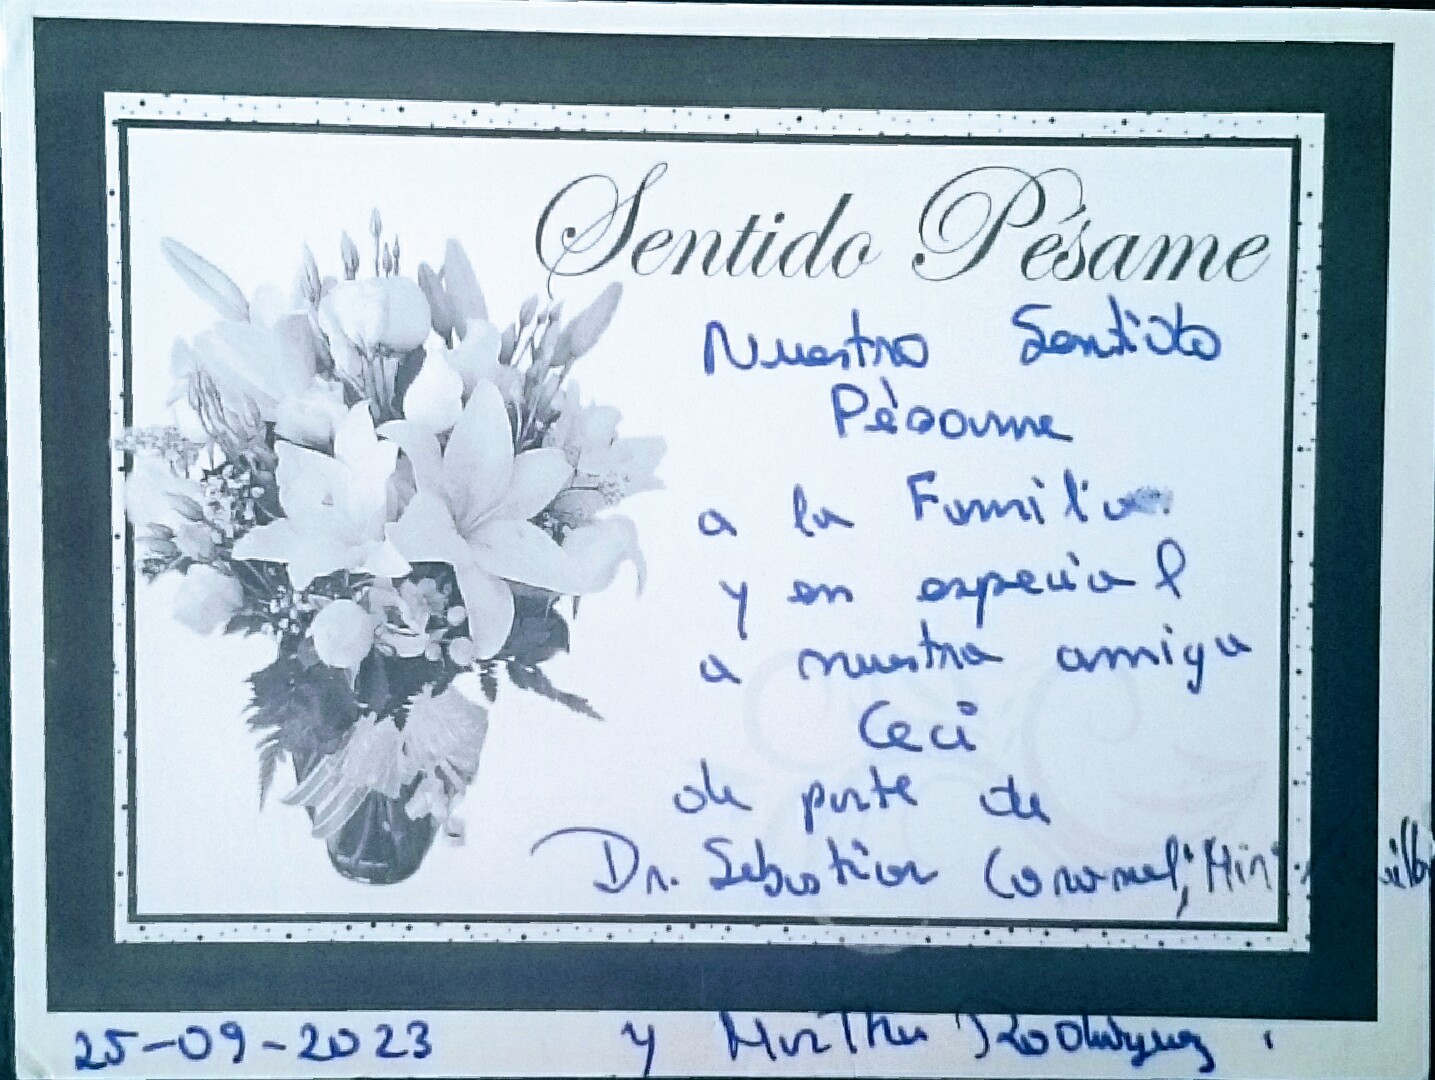 Sentido Pésame
Nuestro Sentido
Pésame
a la Familia
y en especial
a nuestra amiga
Ceci
de parte de
Dr. Sebastian Coronel,
25-09-2023 y Mirtha Rodriguez